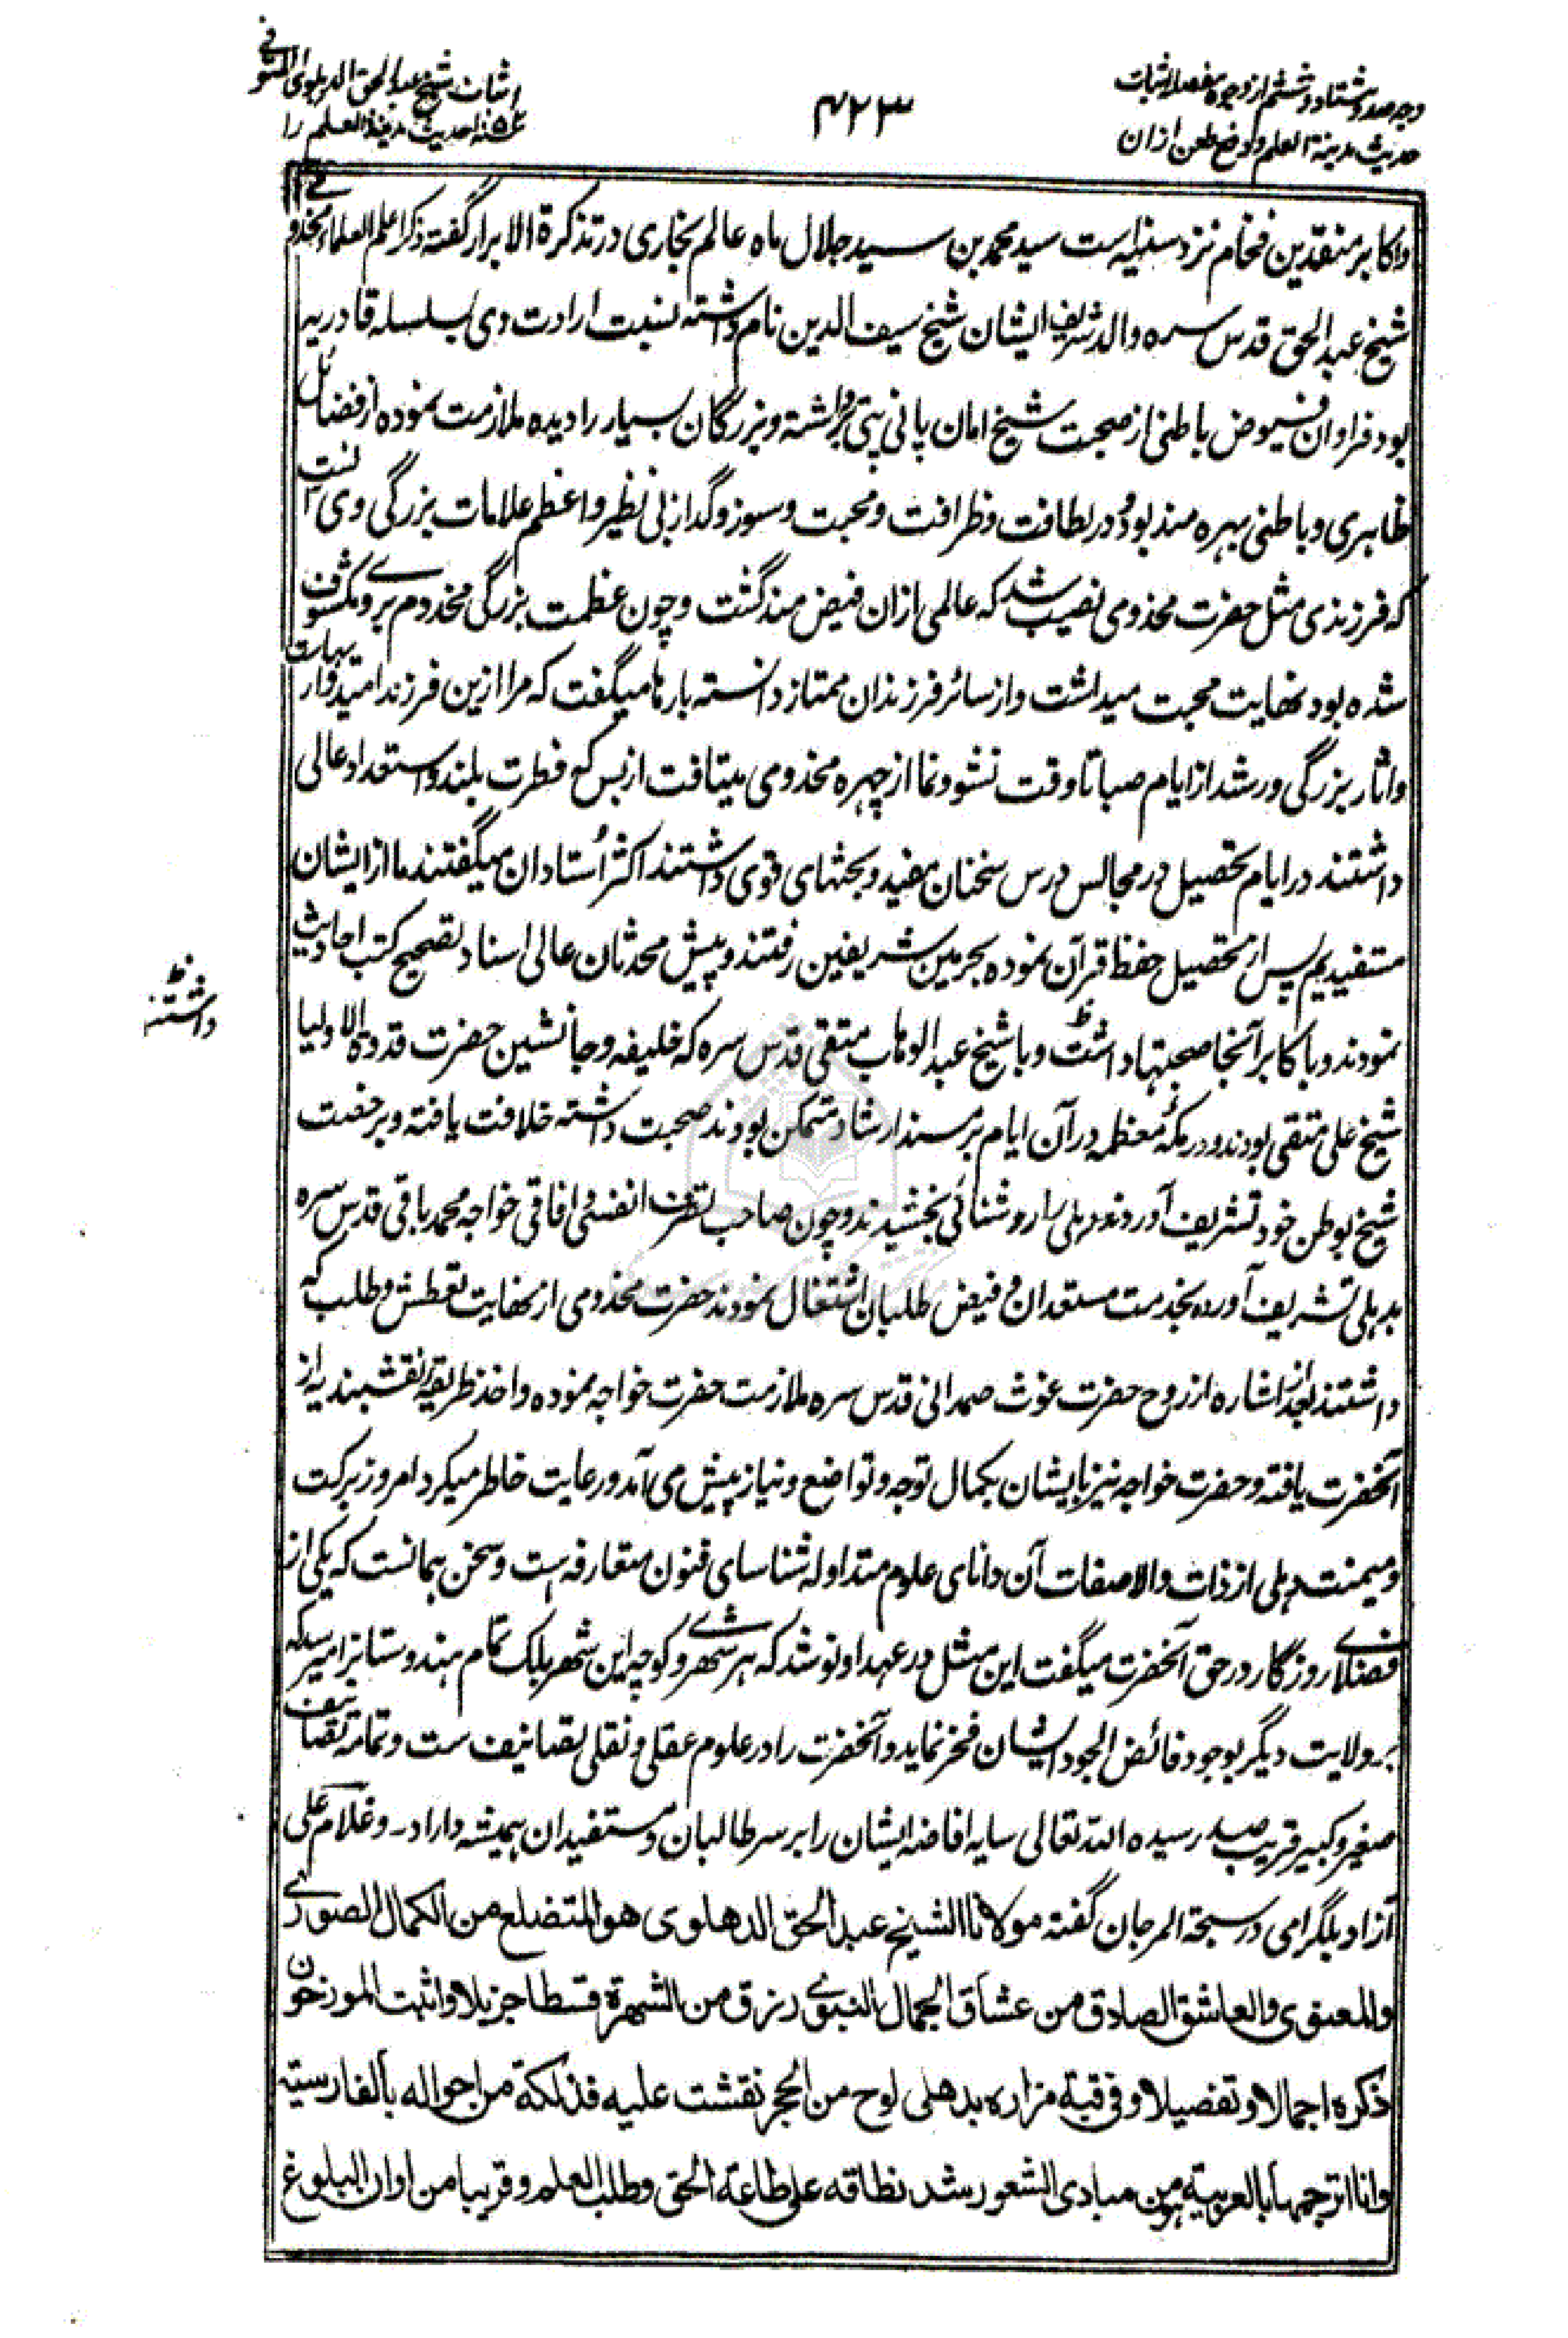 وجه صد و هشتاد و ششم از وجوه مفصله اثبات
حدیث مدینة العلم و دفع طعن ازان
۴۲۳
اثبات شیخ عبد الحق الدهلوی المتوفی
سنه حدیث مدینة العلم را
و اکابر منقدین فخام نزد سنیه است سید محمد بن سید جلال ماه عالم بخاری در تذکرة الابرار گفته ذکر اعلم العلماء مخدومی
شیخ عبد الحق قدس سره والد شریف ایشان شیخ سیف الدین نام داشته نسبت ارادت وی بسلسله قادریه
بود فراوان فیوض باطنی از صحبت شیخ امان پانی پتی برداشته و بزرگان بسیار را دیده ملازمت نموده از فضائل
ظاهری و باطنی بهره مند بود و در لطافت و ظرافت و محبت و سوز و گداز بی نظیر و اعظم علامات بزرگی وی آنست
که فرزندی مثل حضرت مخدومی نصیب شد که عالمی ازان فیض مند گشت و چون عظمت بزرگی مخدوم بر وی مکشوف
شده بود نهایت محبت میداشت و از سائر فرزندان ممتاز دانسته بارها میگفت که مرا ازین فرزند امیدواریهاست
و اثار بزرگی و رشد از ایام صبا تا وقت نشو و نما از چهره مخدومی میتافت از بس که فطرت بلند و استعداد عالی
داشتند در ایام تحصیل در مجالس درس سخنان مفید و بحثهای قوی داشتند اکثر اُستادان میگفتند ما از ایشان
مستفیدیم پس از تحصیل حفظ قرآن نموده بحرمین شریفین رفتند و پیش محدثان عالی اسناد تصحیح کتب احادیث
نمودند و با اکابر آنجا صحبتها داشت و با شیخ عبد الوهاب متقی قدس سره که خلیفه و جانشین حضرت قدوة الاولیا
داشتند
شیخ علی متقی بودند و در مکهٔ معظمه در آن ایام بر مسند ارشاد متمکن بودند صحبت داشته خلافت یافته و برخصت
شیخ بوطن خود تشریف آوردند و دهلی را روشنائی بخشیدند و چون صاحب تصرف انفسی و افاقی خواجه محمد باقی قدس سره
بدهلی تشریف آورده بخدمت مستعدان و فیض طلبان اشتغال نمودند حضرت مخدومی از نهایت تعطش و طلب که
داشتند بعد از اشاره از روح حضرت غوث صمدانی قدس سره ملازمت حضرت خواجه نموده و اخذ طریقهٔ نقشبندیه از
آنحضرت یافته و حضرت خواجه نیز با یشان بکمال توجه و تواضع و نیاز پیش می آمد و رعایت خاطر میکرد امروز برکت
و میمنت دهلی از ذات والا صفات آن دانای علوم متداوله شناسای فنون متعارفه است و سخن همانست که یکی از
فضلای روزگار در حق آنحضرت میگفت این مثل در عهد او نو شد که هر شهری و کوچه این شهر بلک تمام هندوستانرا میرسد که
بر ولایت دیگر بوجود فائض الجود ایشان فخر نماید و آنحضرت را در علوم عقلی و نقلی تصانیف ست و تمامه تصانیف
صغیر و کبیر قریب صد رسیده الله تعالی سایه افاضه ایشان را بر سر طالبان و مستفیدان همیشه دارا د ـ و غلام علی
آزاد بلگرامی در سبحة المرجان گفته مولانا الشیخ عبد الحق الدهلوی هو المتضلع من الکمال الصوری
والمعنوی والعاشق الصادق من عشاق الجمال النبوی رزق من الشهرة قسطا جزیلا و اثبت المورخون
ذکره اجمالا و تفصیلا و فی قبة مزاره بدهلی لوح من الحجر نقشت علیه فذلکة من احواله بالفارسیة
و انا اترجمها بالعربیة هو من مبادی الشعور شد نطاقه علی طاعة الحق و طلب العلم و قریبا من اوان البلوغ